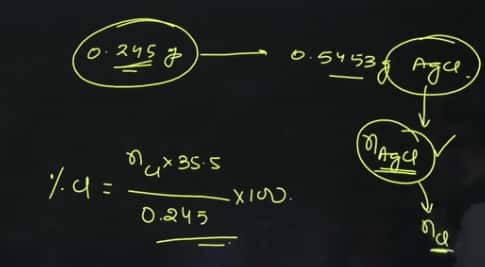 0.245 g → 0.5453 g AgCl.
nAgCl ✓
nCl
% Cl = nCl × 35.5 / 0.245 × 100.